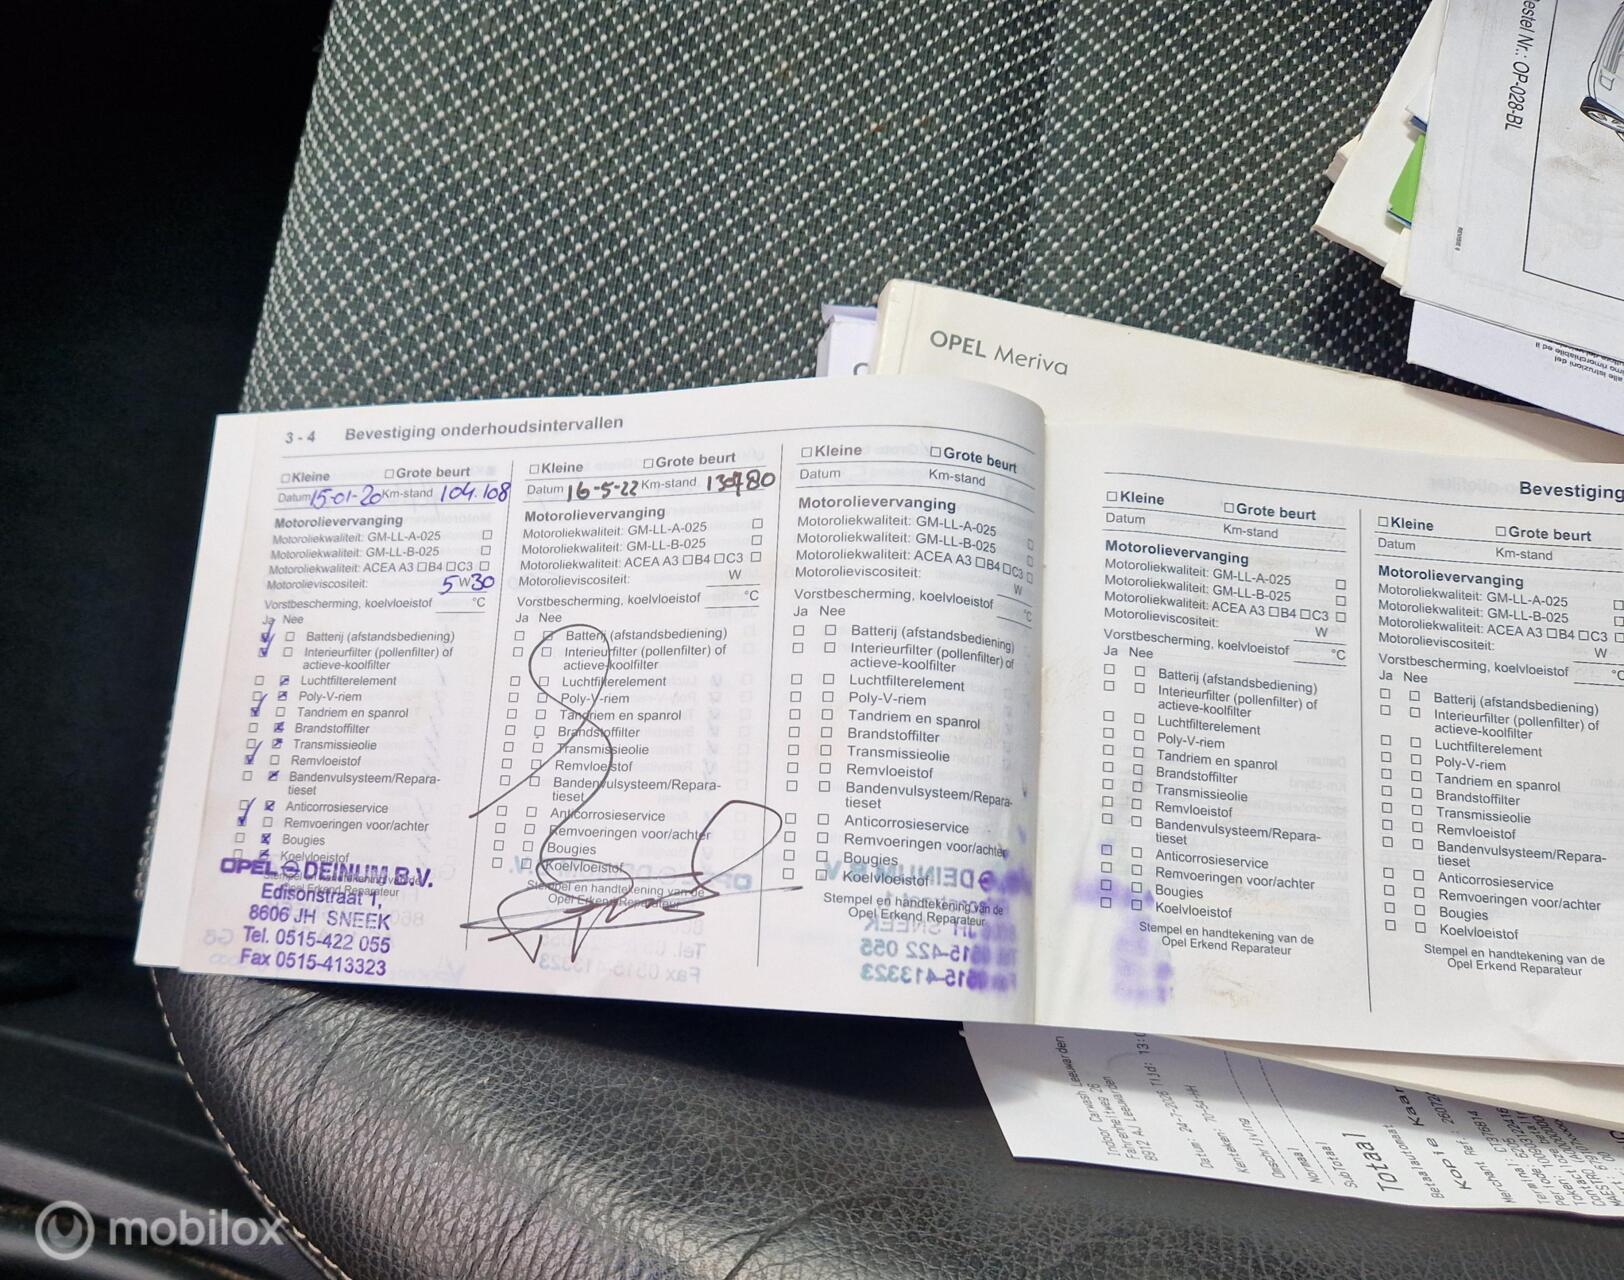 estel Nr.: OP-028-BL
OPEL Meriva
3 - 4 Bevestiging onderhoudsintervallen
Kleine Grote beurt
Datum 15-01-20 Km-stand 104.108
Motorolievervanging
Motoroliekwaliteit: GM-LL-A-025
Motoroliekwaliteit: GM-LL-B-025
Motoroliekwaliteit: ACEA A3 B4 C3
Motorolieviscositeit: 5W30
Vorstbescherming, koelvloeistof °C
Ja Nee
Batterij (afstandsbediening)
Interieurfilter (pollenfilter) of
actieve-koolfilter
Luchtfilterelement
Poly-V-riem
Tandriem en spanrol
Brandstoffilter
Transmissieolie
Remvloeistof
Bandenvulsysteem/Repara-
tieset
Anticorrosieservice
Remvoeringen voor/achter
Bougies
Koelvloeistof
OPEL DEINUM B.V.
Edisonstraat 1,
8606 JH SNEEK
Tel. 0515-422 055
Fax 0515-413323
Kleine Grote beurt
Datum 16-5-22 Km-stand
Motorolievervanging
Motoroliekwaliteit: GM-LL-A-025
Motoroliekwaliteit: GM-LL-B-025
Motoroliekwaliteit: ACEA A3 B4 C3
Motorolieviscositeit: W
Vorstbescherming, koelvloeistof °C
Ja Nee
Batterij (afstandsbediening)
Interieurfilter (pollenfilter) of
actieve-koolfilter
Luchtfilterelement
Poly-V-riem
Tandriem en spanrol
Brandstoffilter
Transmissieolie
Remvloeistof
Bandenvulsysteem/Repara-
tieset
Anticorrosieservice
Remvoeringen voor/achter
Bougies
Koelvloeistof
Stempel en handtekening van de
Opel Erkend Reparateur
Kleine Grote beurt
Datum Km-stand
Motorolievervanging
Motoroliekwaliteit: GM-LL-A-025
Motoroliekwaliteit: GM-LL-B-025
Motoroliekwaliteit: ACEA A3 B4 C3
Motorolieviscositeit: W
Vorstbescherming, koelvloeistof °C
Ja Nee
Batterij (afstandsbediening)
Interieurfilter (pollenfilter) of
actieve-koolfilter
Luchtfilterelement
Poly-V-riem
Tandriem en spanrol
Brandstoffilter
Transmissieolie
Remvloeistof
Bandenvulsysteem/Repara-
tieset
Anticorrosieservice
Remvoeringen voor/achter
Bougies
Koelvloeistof
Stempel en handtekening van de
Opel Erkend Reparateur
Bevestiging
Kleine Grote beurt
Datum Km-stand
Motorolievervanging
Motoroliekwaliteit: GM-LL-A-025
Motoroliekwaliteit: GM-LL-B-025
Motoroliekwaliteit: ACEA A3 B4 C3
Motorolieviscositeit: W
Vorstbescherming, koelvloeistof °C
Ja Nee
Batterij (afstandsbediening)
Interieurfilter (pollenfilter) of
actieve-koolfilter
Luchtfilterelement
Poly-V-riem
Tandriem en spanrol
Brandstoffilter
Transmissieolie
Remvloeistof
Bandenvulsysteem/Repara-
tieset
Anticorrosieservice
Remvoeringen voor/achter
Bougies
Koelvloeistof
Stempel en handtekening van de
Opel Erkend Reparateur
Kleine Grote beurt
Datum Km-stand
Motorolievervanging
Motoroliekwaliteit: GM-LL-A-025
Motoroliekwaliteit: GM-LL-B-025
Motoroliekwaliteit: ACEA A3 B4 C3
Motorolieviscositeit: W
Vorstbescherming, koelvloeistof °C
Ja Nee
Batterij (afstandsbediening)
Interieurfilter (pollenfilter) of
actieve-koolfilter
Luchtfilterelement
Poly-V-riem
Tandriem en spanrol
Brandstoffilter
Transmissieolie
Remvloeistof
Bandenvulsysteem/Repara-
tieset
Anticorrosieservice
Remvoeringen voor/achter
Bougies
Koelvloeistof
Stempel en handtekening van de
Opel Erkend Reparateur
Indoor Carwash Leeuwarden
Fahrenheitweg 26
8912 AJ Leeuwarden
Kenteken: 70-SH-HH
Omschrijving
Normaal
SubTotaal
Totaal
Betaalautomaat
KOPIE Kaar
mobilox